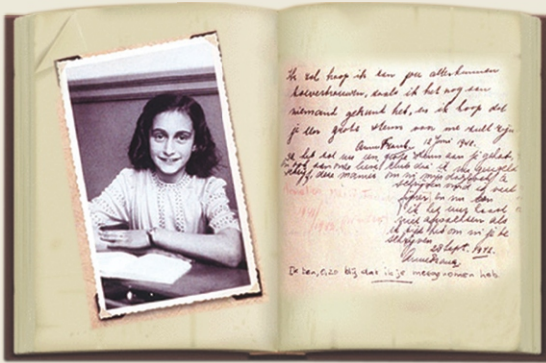 Ik zal hoop ik aan jou alles kunnen
toevertrouwen, zoals ik het nog aan
niemand gekund heb, en ik hoop dat
je een grote steun voor me zult zijn.
Anne Frank. 12 Juni 1942.
Ik heb tot nu een grote steun aan je gehad,
en ook aan onze lieve club die ik nu geregeld
schrijf, deze manier om in mijn dagboek te
schrijven vind ik veel
fijner en nu kan
ik het uur haast
niet afwachten als
ik tijd heb om in je te
schrijven.
28 Sept. 1942.
Anne Frank.
Ik ben, o, zo blij dat ik je meegenomen heb.